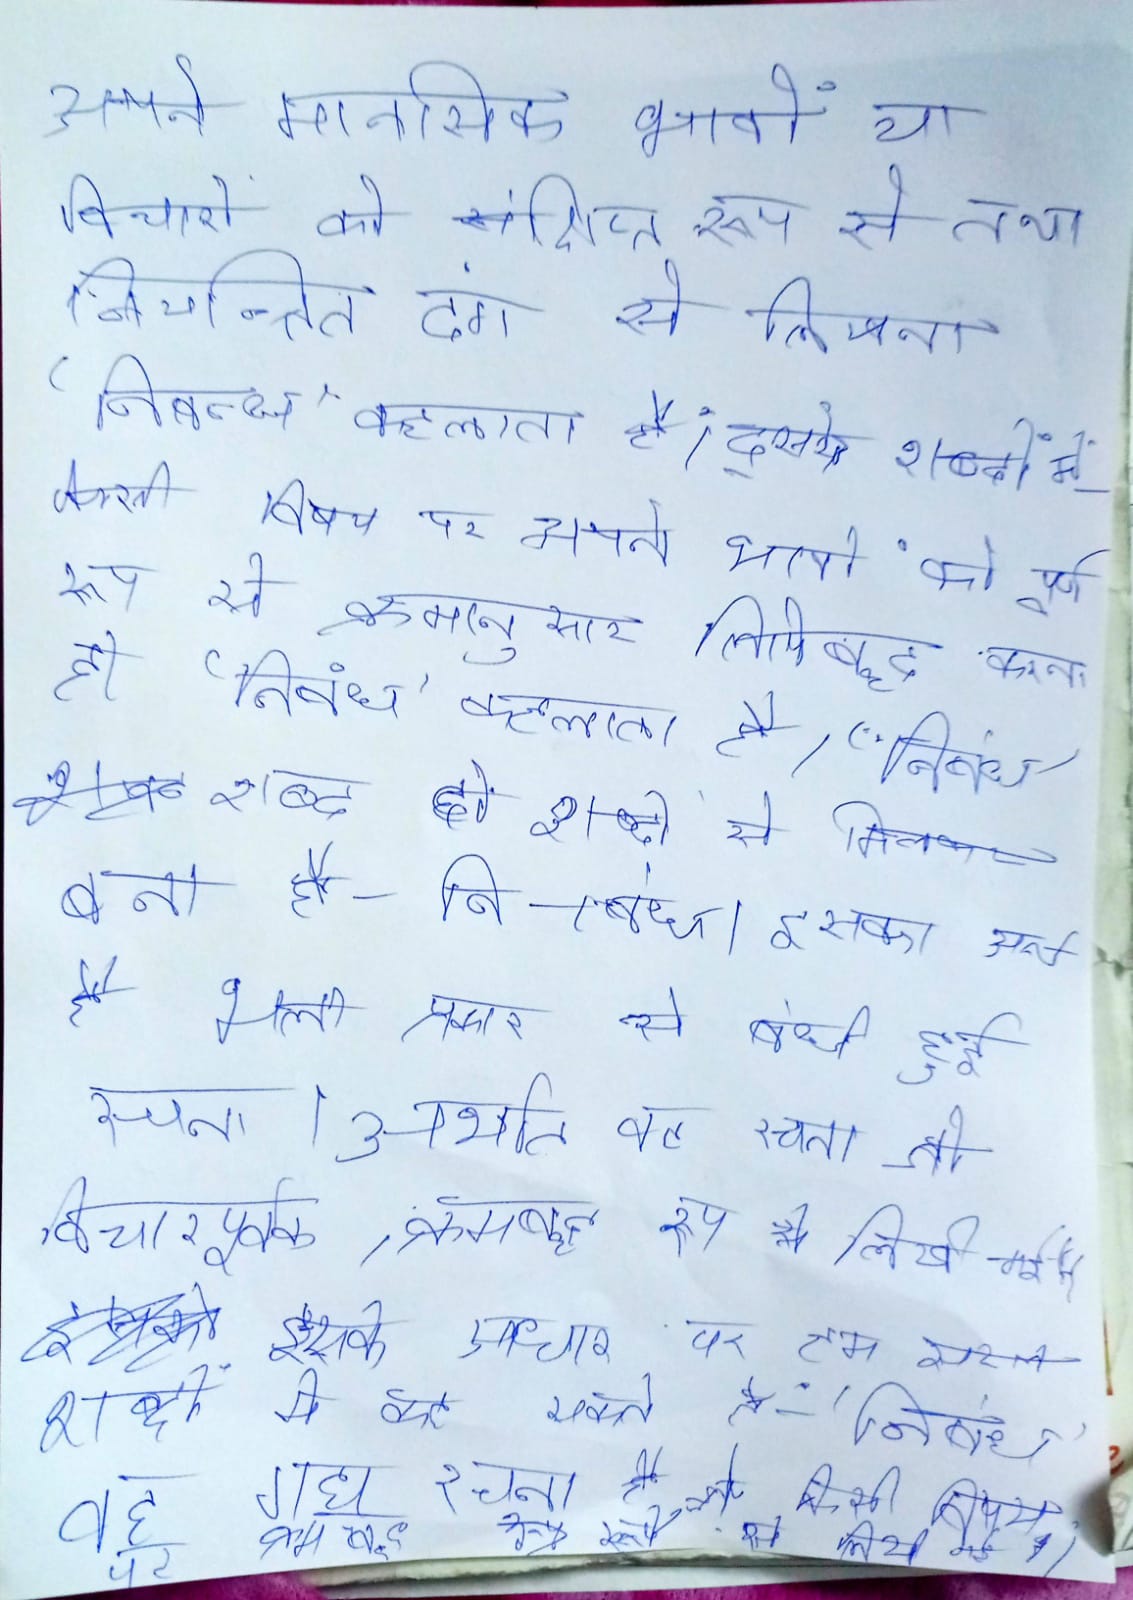 अपने मानसिक भावों या
विचारों को संक्षिप्त रूप से तथा
नियन्त्रित ढंग से लिखना
'निबन्ध' कहलाता है। दूसरे शब्दों में-
किसी विषय पर अपने भावों को पूर्ण
रूप से क्रमानुसार लिपिबद्ध करना
ही 'निबंध' कहलाता है। 'निबंध'
शब्द दो शब्दों से मिलकर
बना है- नि+बंध। इसका अर्थ
है भली प्रकार से बंधी हुई
रचना। अर्थात वह रचना जो
विचारपूर्वक, क्रमबद्ध रूप से लिखी गई हो
इसके आधार पर हम सरल
शब्दों में कह सकते है- 'निबंध'
वह गद्य रचना है, जो किसी विषय
पर क्रमबद्ध रूप से लिखी गई हो।